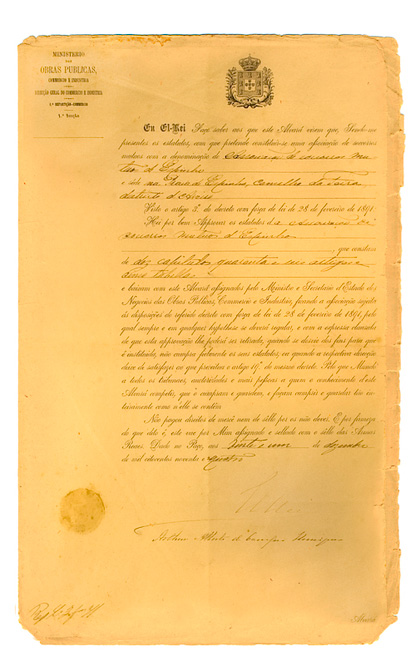 MINISTERIO
DAS
OBRAS PUBLICAS,
COMMERCIO E INDUSTRIA
DIRECÇÃO GERAL DO COMMERCIO E INDUSTRIA
1.ª REPARTIÇÃO-COMMERCIO
2.ª Secção
Eu El-Rei Faço saber aos que este Alvará virem que, Sendo-me
presentes os estatutos, com que pretende constituir-se uma associação de soccorros
mutuos com a denominação de
d'Espinho
e séde em Espinho, concelho da Feira,
districto d'Aveiro
Visto o artigo 3.º do decreto com força de lei de 28 de fevereiro de 1891,
Hei por bem Approvar os estatutos da associação de
soccorros mutuos d'Espinho
, que constam
de dez capitulos quarenta e seis artigos e
e baixam com este Alvará assignados pelo Ministro e Secretario d'Estado dos
Negocios das Obras Publicas, Commercio e Industria, ficando a associação sujeita
ás disposições do referido decreto com força de lei de 28 de fevereiro de 1891, pelo
qual sempre e em qualquer hypothese se deverá regular, e com a expressa clausula
de que esta approvação lhe poderá ser retirada, quando se desvie dos fins para que
é instituida, não cumpra fielmente os seus estatutos, ou quando a respectiva direcção
deixe de satisfazer ao que preceitua o artigo 16.º do mesmo decreto. Pelo que Mando
a todos os tribunaes, auctoridades e mais pessoas a quem o conhecimento d'este
Alvará competir, que o cumpram e guardem, e façam cumprir e guardar tão in-
teiramente como n'elle se contém.
Não pagou direitos de mercê nem de sêllo por os não dever. E por firmeza
do que dito é, este vae por Mim assignado e sellado com o sêllo das Armas
Reaes. Dado no Paço, aos vinte e um de
de mil oitocentos noventa e quatro
Alvará